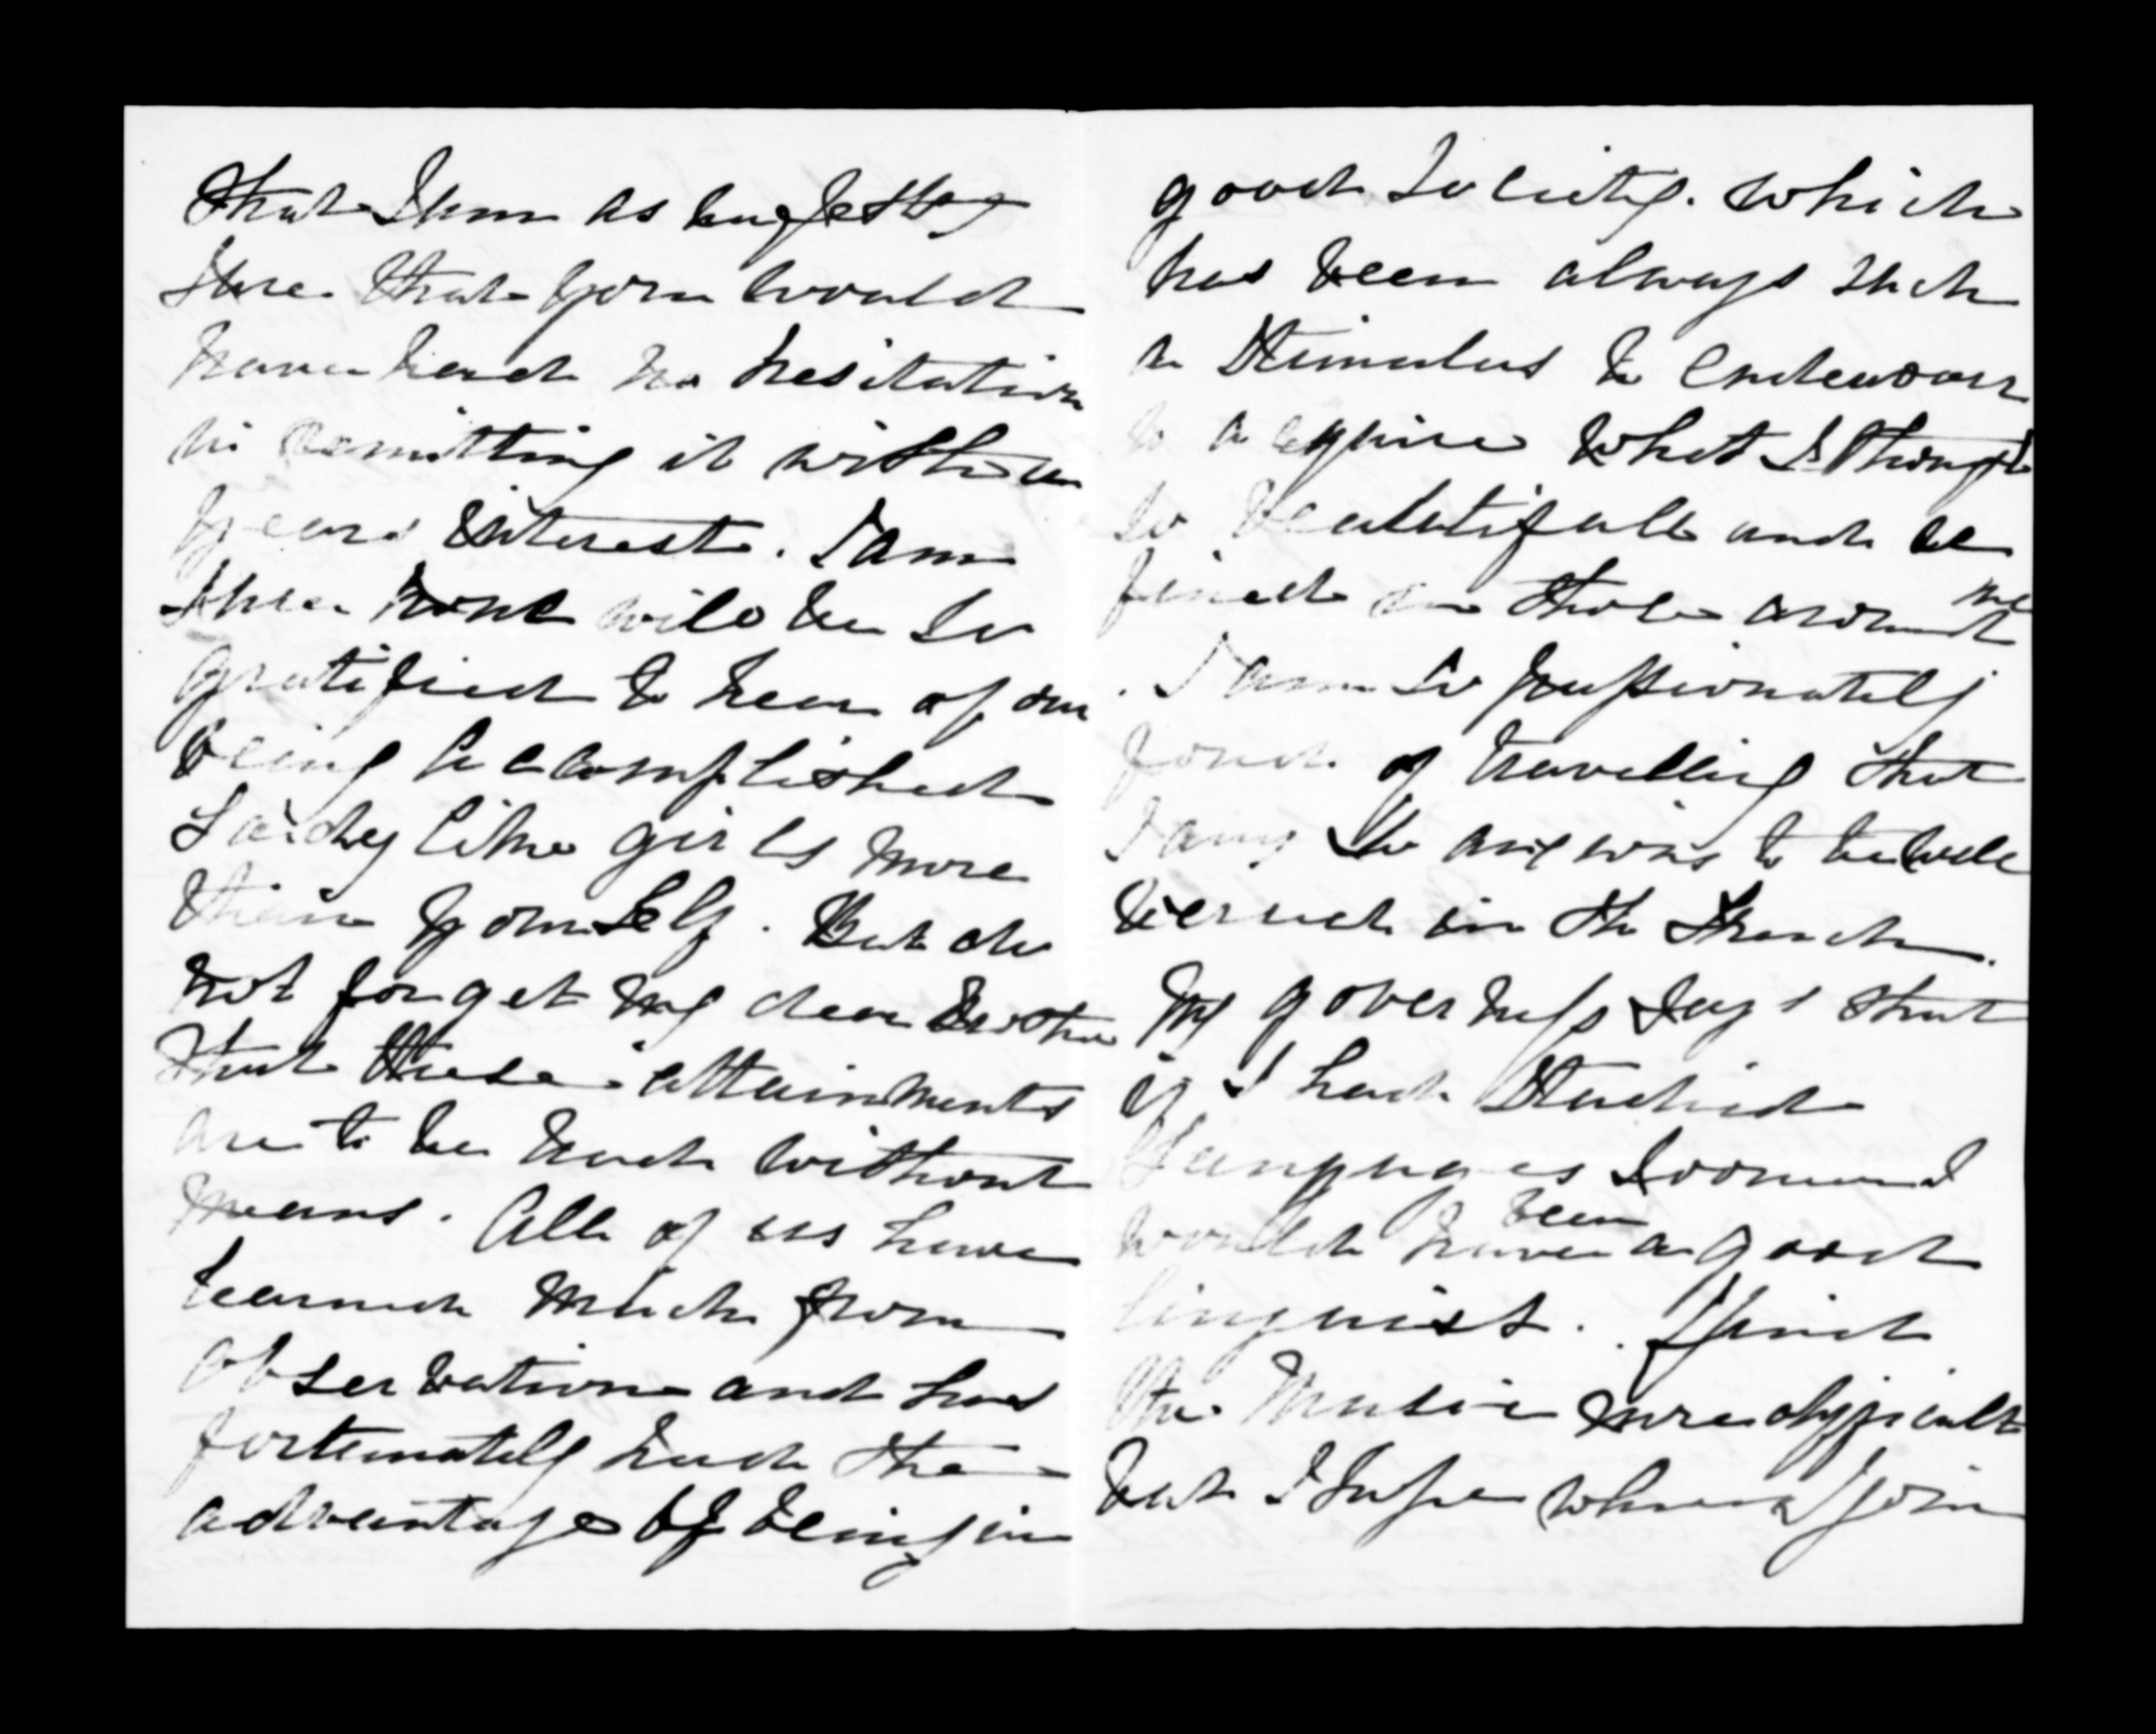 that I am as
sure that you would
have had no hesitation
in remitting it with a
years interest. I am
sure none will be so
gratified to hear of our
being accomplished
Laidy like girls more
than yourself. But do
not forget my dear brother
that these attainments
are to be had without
means. All of us have
learned much from
observation and has
fortunately had the
advantage of being in
good society. which
has been always such
a stimulus to endeavour
to acequire what I thought
so beautifull and re
fined in those around me
. I am so passionately
fond of travelling that
I am so anxious to be well
versed in the French.
My governess says that
if I had studied
Languages sooner I
would have been a good
linguist. I find
the Music more difficult
but I hope when I join